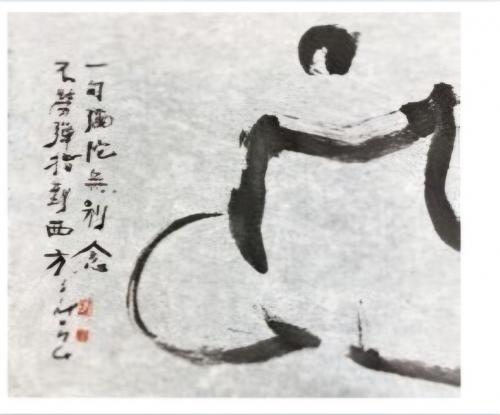 一句彌陀無別念
不勞彈指到西方